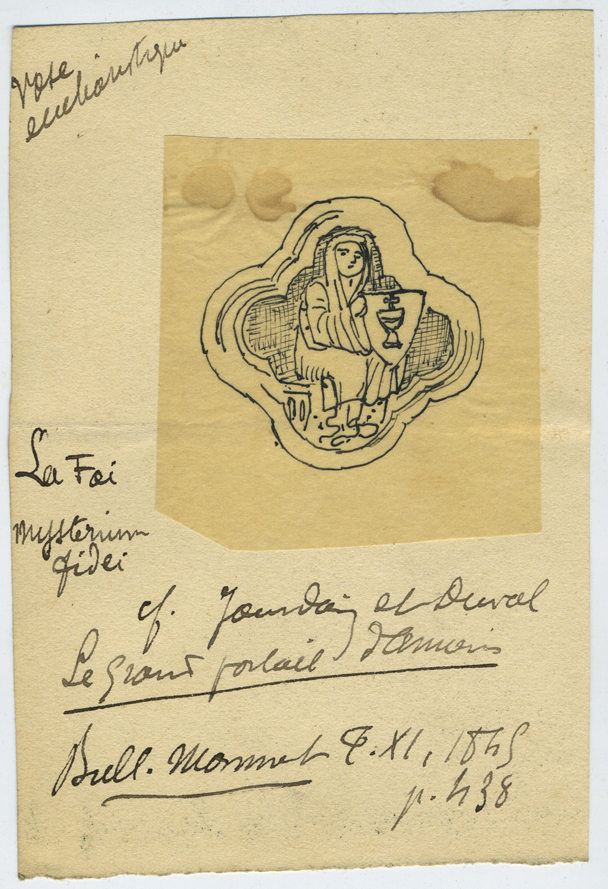 Vase
eucharistique
La Foi
mysterium
fidei
cf. Jourdain et Duval
Le Grand portail d'Amiens
Bull. Monumt T. XI, 1845
p. 438